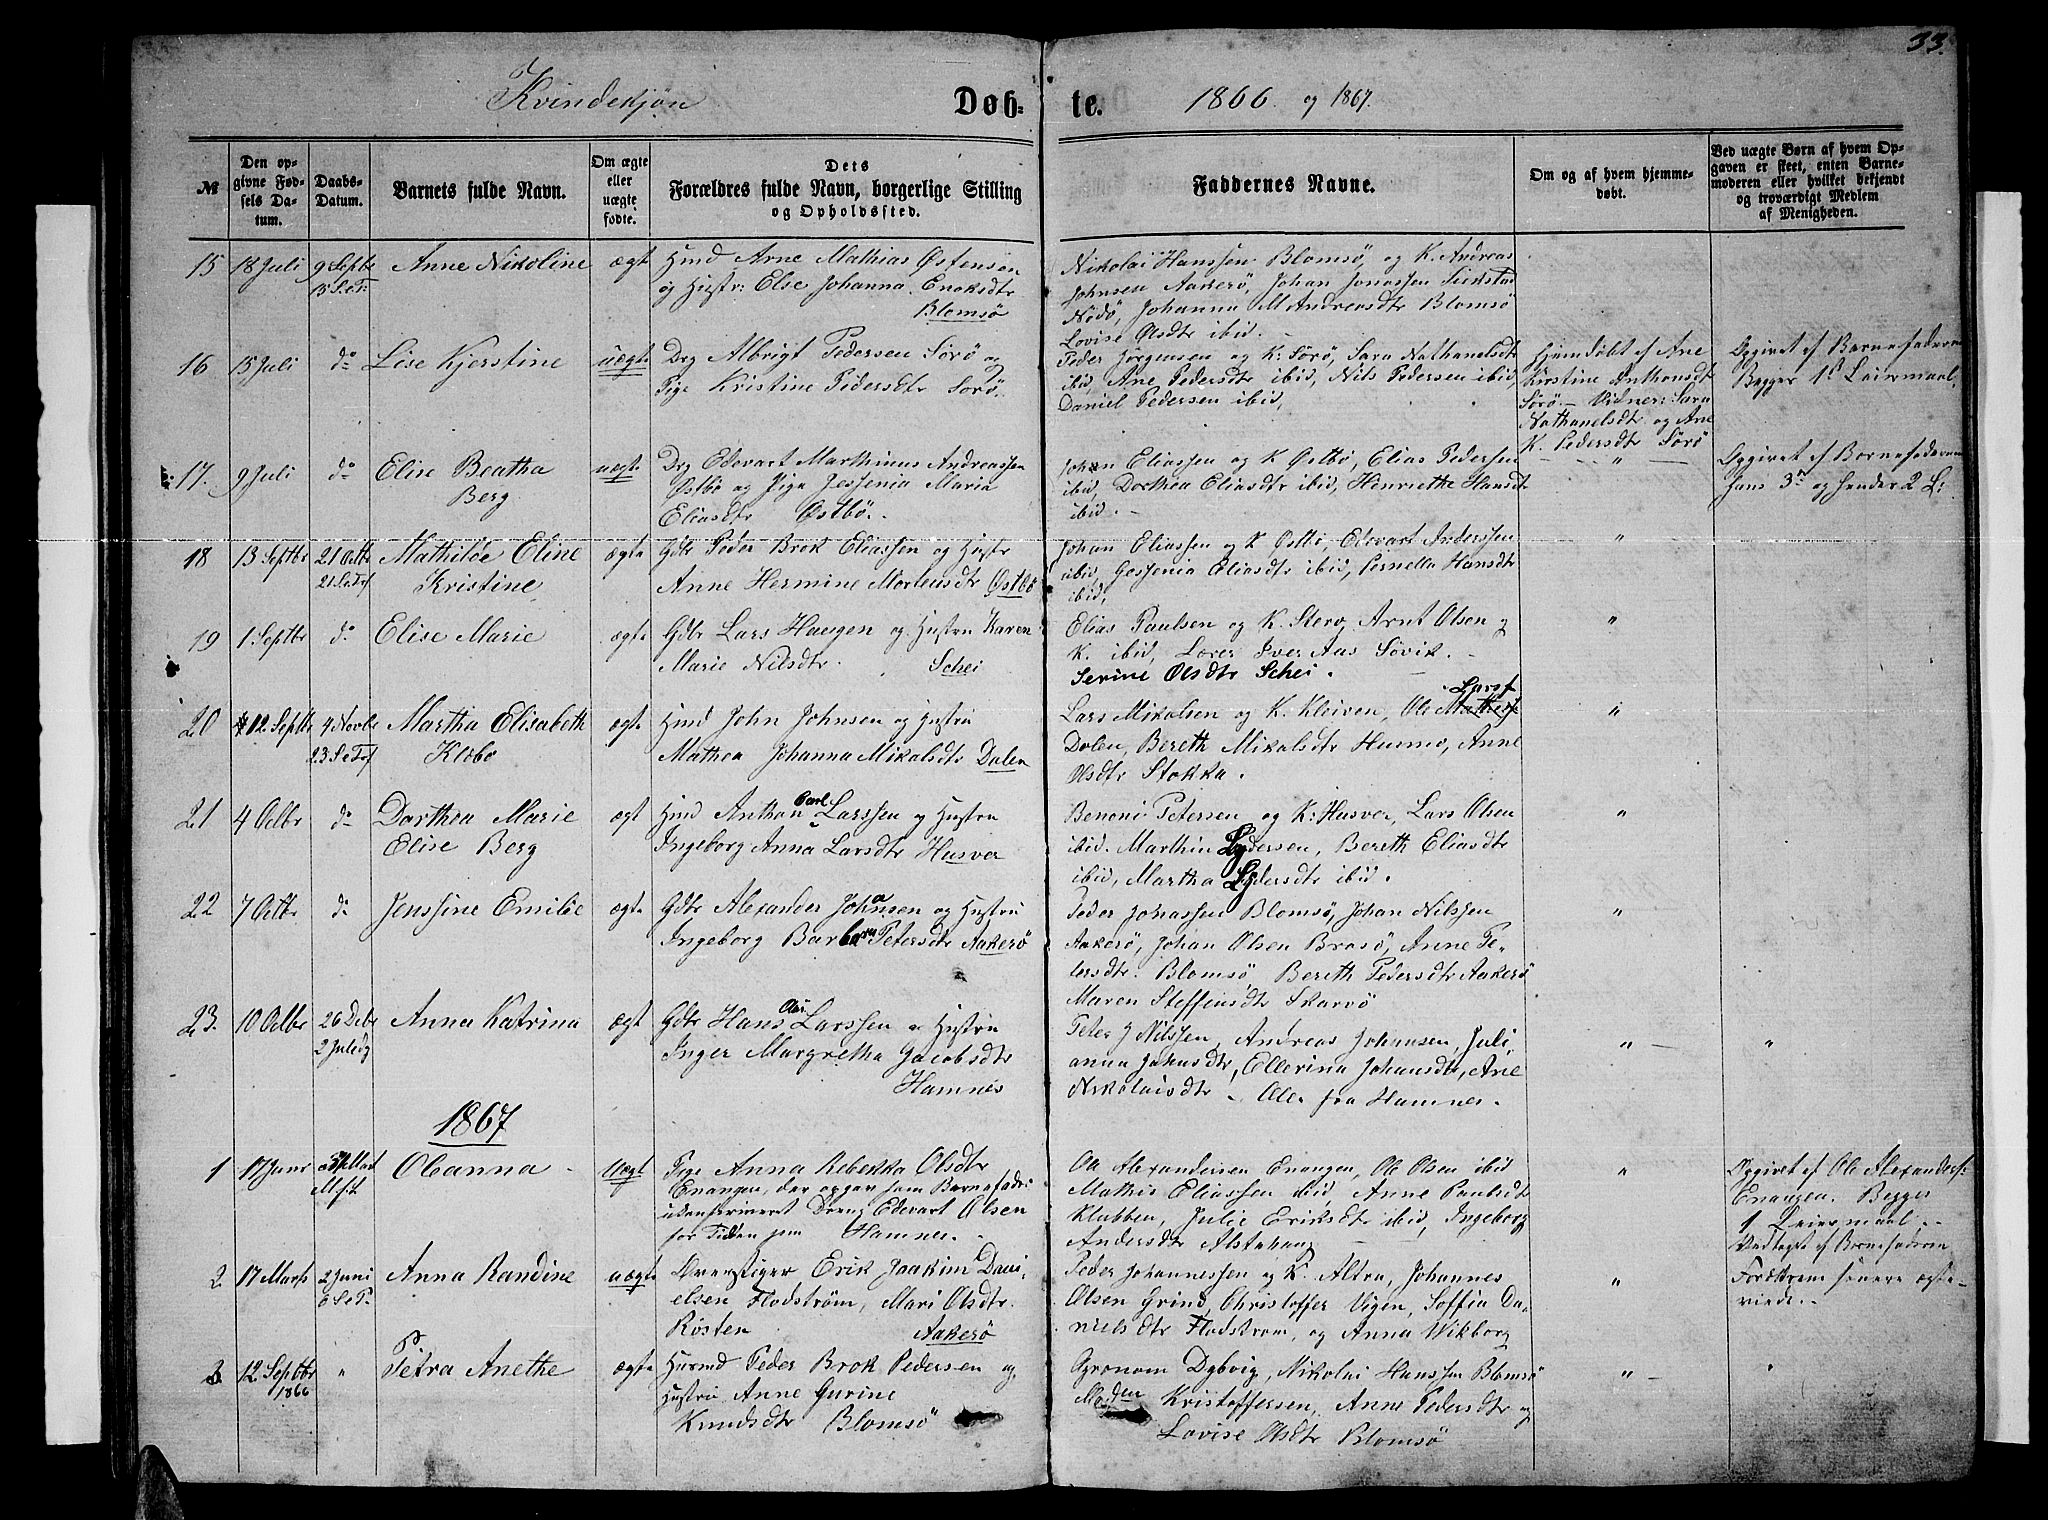 33.
Kvindekjøn Døb- te. 1866 og 1867.
№
Den op-
givne Fød-
sels Da-
tum.
Daabs-
Datum.
Barnets fulde Navn.
Om ægte
eller
uægte
fødte.
Dets
Forældres fulde Navn, borgerlige Stilling
og Opholdssted.
Faddernes Navne.
Om og af hvem hjemme-
døbt.
Ved uægte Børn af hvem Op-
gaven er skeet, enten Barne-
moderen eller hvilket bekjendt
og troværdigt Medlem
af Menigheden.
15 18 Juli 9 Septbr Anne Nikoline ægt Hmd Arne Mathias Østensen
15 S.e.T: og Hustr: Else Johanna Enoksdtr
Blomsö
Nikolai Hanssen Blomsö, og K. Andreas
Johnsen Aakerö, Johan Jonassen
Nödö, Johanna M Andreasdtr Blomsö
Lovise Olsdtr ibid.
16 15 Juli do Lise Kjerstine uægte Drg Albrigt Pedersen Sörö og
Pige Kristine Pedersdtr Sörö.
Peder Jörgensen og K: Sörö, Sara Nathanelsdtr
ibid, Ane Pedersdtr ibid, Nils Pedersen ibid,
Daniel Pedersen ibid,
Hjemdöbt af Ane
Kirstine Anthonsdtr
Sörö. – Vidner: Sara
Nathanelsdtr og Ane
K. Pedersdtr Sörö
Opgivet af Barnefaderen
Begges 1ste Leiermaal.
17. 9 Juli do Elise Beatha uægte Drg Edevart Marthinus Andreassen
Berg Östbö og Pige Jessenia Maria
Eliasdtr Østbö.
Johan Eliassen og K Østbö, Elias Pedersen
ibid, Dorthea Eliasdtr ibid, Henriethe Hansdtr
ibid.
"
Opgivet af Barnefaderen
hans 3die og hendes 2 L:
18 13 Septbr 21 Octbr Mathilde Eline ægte Gdbr Peder Brok Eliassen og Hustr
Kristine Anne Hermine Mortensdtr Østbö
Johan Eliassen og K Østbö, Edevart Anderssen
ibid, Gessenia Eliasdtr ibid, Pernella Hansdtr
ibid,
"
19 1 Septbr do Elise Marie ægte Gdbr Lars Haugen og Hustru Karen
Marie Nilsdtr. Schei
Elias Paulsen og K. Stero, Arnt Olsen og
K. ibid, Lærer Iver Aas Sövik.
Serine Olsdtr Schei.
"
20 12 Septbr 4 Novbr Martha Elisabeth ægte Hmd John Johnsen og Hustru
Klöbo Mathea Johanna Mikalsdtr Dalen
Lars Mikalsen og K. Kleiven, Ole Larss
Dalen, Bereth Mikalsdtr Husmo, Anne
Olsdtr Stokka.
"
21 4 Octbr do Dorthea Marie ægt Hmd Anthon Carl Larssen og Hustru
Elise Berg Ingeborg Anna Larsdtr Husver
Benoni Petersen og K: Husver, Lars Olsen
ibid. Marthin Lydersen, Bereth Eliasdtr
ibid, Martha Lydersdtr ibid.
"
22 7 Octbr do Jenssine Emilie ægte Gdbr Alexander Johansen og Hustru
Ingeborg Barbara Petersdtr Aakerö
Peder Jonassen Blomsö, Johan Nilssen
Aakerö, Johan Olsen Brasö, Anne Pe-
tersdtr. Blomsö, Bereth Pedersdtr Aakerö
Maren Steffensdtr Skarvö
"
23. 10 Octbr 26 Debr Anna Katrina ægt Gdbr Hans Larssen og Hustru
2 Juledg Inger Margretha Jacobsdtr
Hamnes
Peter J Nilssen, Andreas Johansen, Juli-
anna Johansdtr, Ellerina Johansdtr, Ane
Nikolaisdtr – Alle fra Hamnes.
"
"
1867
1 17 Janr Oleanna uægt Pige Anna Rebekka Olsdtr
Enangen, der opgav som Barnefader
ukonfirmeret Dreng Edevart Olsen
for Tiden paa Hamnes.
Ole Alexandersen Enangen, Ole Olsen ibid
Mathis Eliassen ibid, Anne Paulsdtr
Klubben, Julie Eriksdtr ibid, Ingeborg
Andersdtr Alstahaug
"
Opgivet af Ole Alexanders:
Enangen. Begges
1 Leiermaal.
2 17 Marts 2 Juni Anna Randine uægte Opsetsiger Erik Joakim Dani-
elsen Flodström, Mari Olsdtr.
Rösten Aakerö
Peder Johannessen og K. Altra, Johannes
Olsen Grind, Christoffer Vigen, Soffia Da-
nielsdtr Flodström, og Anna Wikborg
"
Vedtaget af Barnefaderen
Forældrene senere ægte-
viede.
3 12 Septbr " Petra Anethe ægte Husmd Peder Brok Pedersen og
1866 Hustru Anne Gurine
Knudsdtr Blomsö
Agronom Dybvig, Nikolai Hanssen Blomsö
Kristoffersen, Anne Pedersdtr og
Lovise Olsdtr Blomsö
"
"